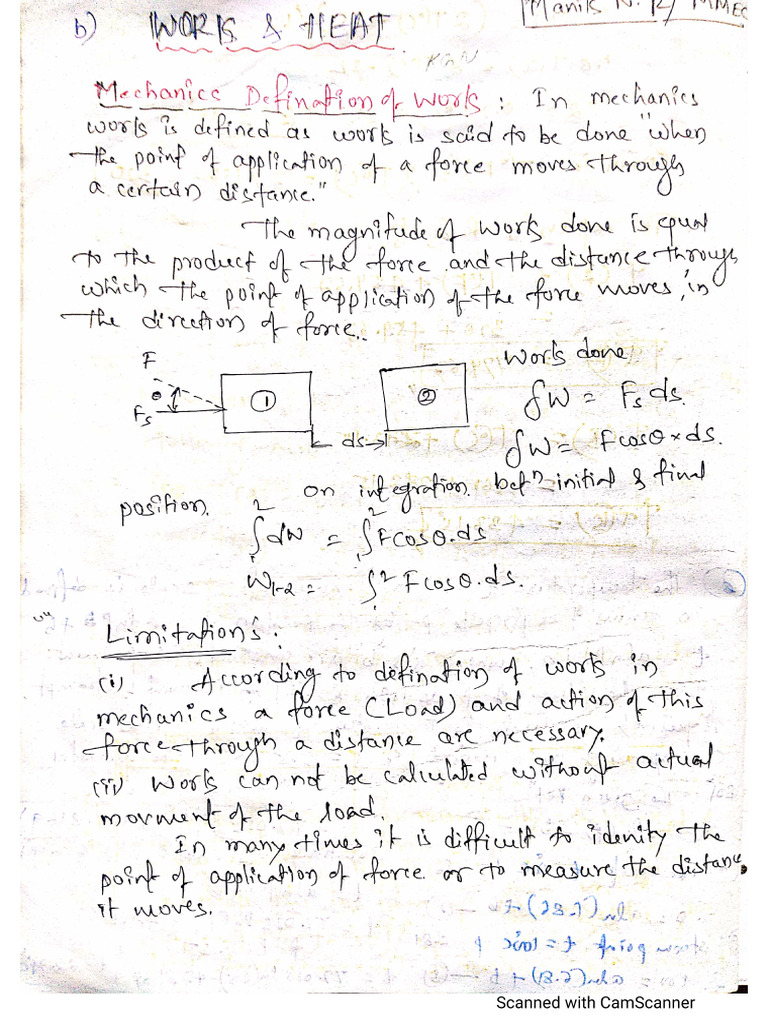 b) WORK & HEAT
Manik N. R/ MMEC
Mechanics Defination of work : In mechanics
work is defined as work is said to be done "when
the point of application of a force moves through
a certain distance."
The magnitude of work done is equal
to the product of the force and the distance through
which the point of application of the force moves, in
the direction of force.
work done
F
θ
Fs
①
②
ds
δW = Fs ds.
δW = Fcosθ × ds.
on integration betn initial & final
position.
∫₁² dW = ∫₁² Fcosθ.ds
W1-2 = ∫₁² Fcosθ.ds.
Limitation's :
(i) According to defination of work in
mechanics a force (Load) and action of this
force through a distance are necessary.
(ii) Work can not be calculated without actual
movment of the load.
In many times it is difficult to idenity the
point of application of force or to measure the distance
it moves.
Scanned with CamScanner